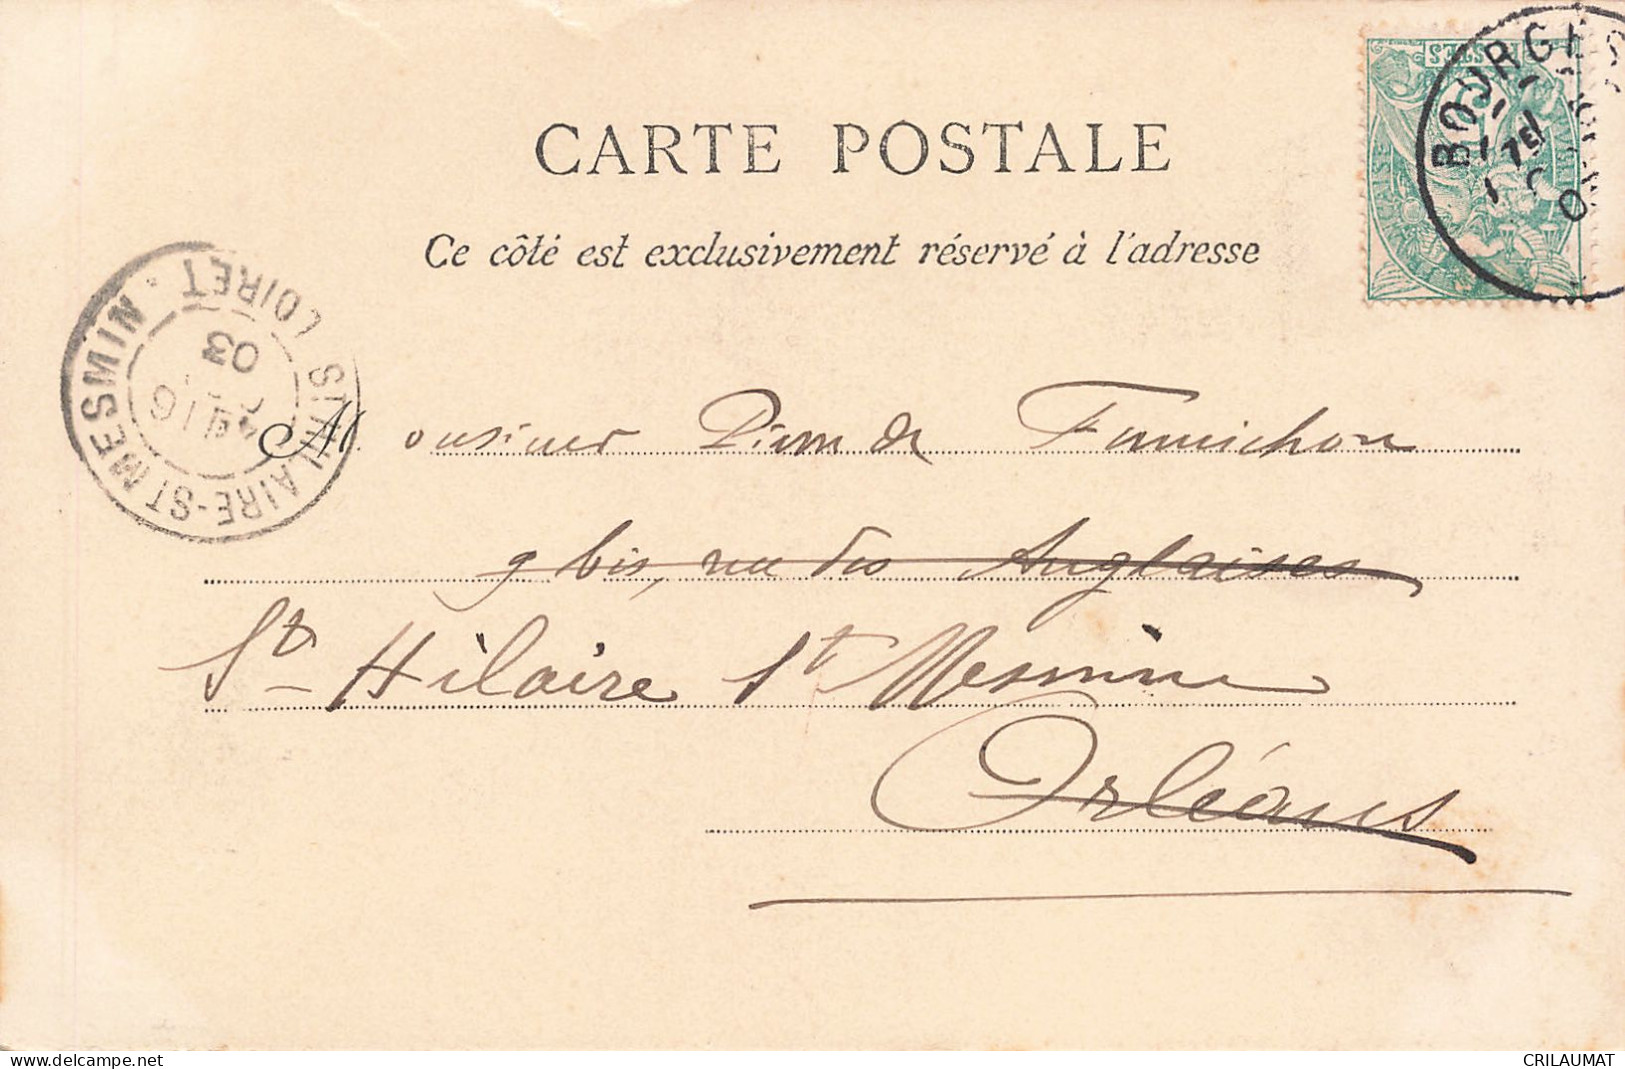 POSTES
BOURGES
CARTE POSTALE
Ce côté est exclusivement réservé à l'adresse
ST HILAIRE-ST MESMIN . LOIRET
16
03
Monsieur Pierre de Fumichon
9 bis, rue des Anglaises
St Hilaire St Mesmin
Orléans
www.delcampe.net
CRILAUMAT